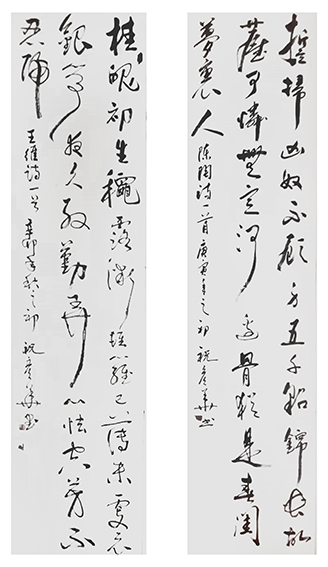 誓掃匈奴不顧身五千貂錦喪胡
塵可憐無定河邊骨猶是春閨
夢裏人 陳陶詩一首 庚寅年之初 祝彥華書
桂魄初生穐露微輕羅已薄未更衣
銀箏夜久殷勤弄心怯空房不
忍歸 王維詩一首 辛卯年秋之初 祝彥華書